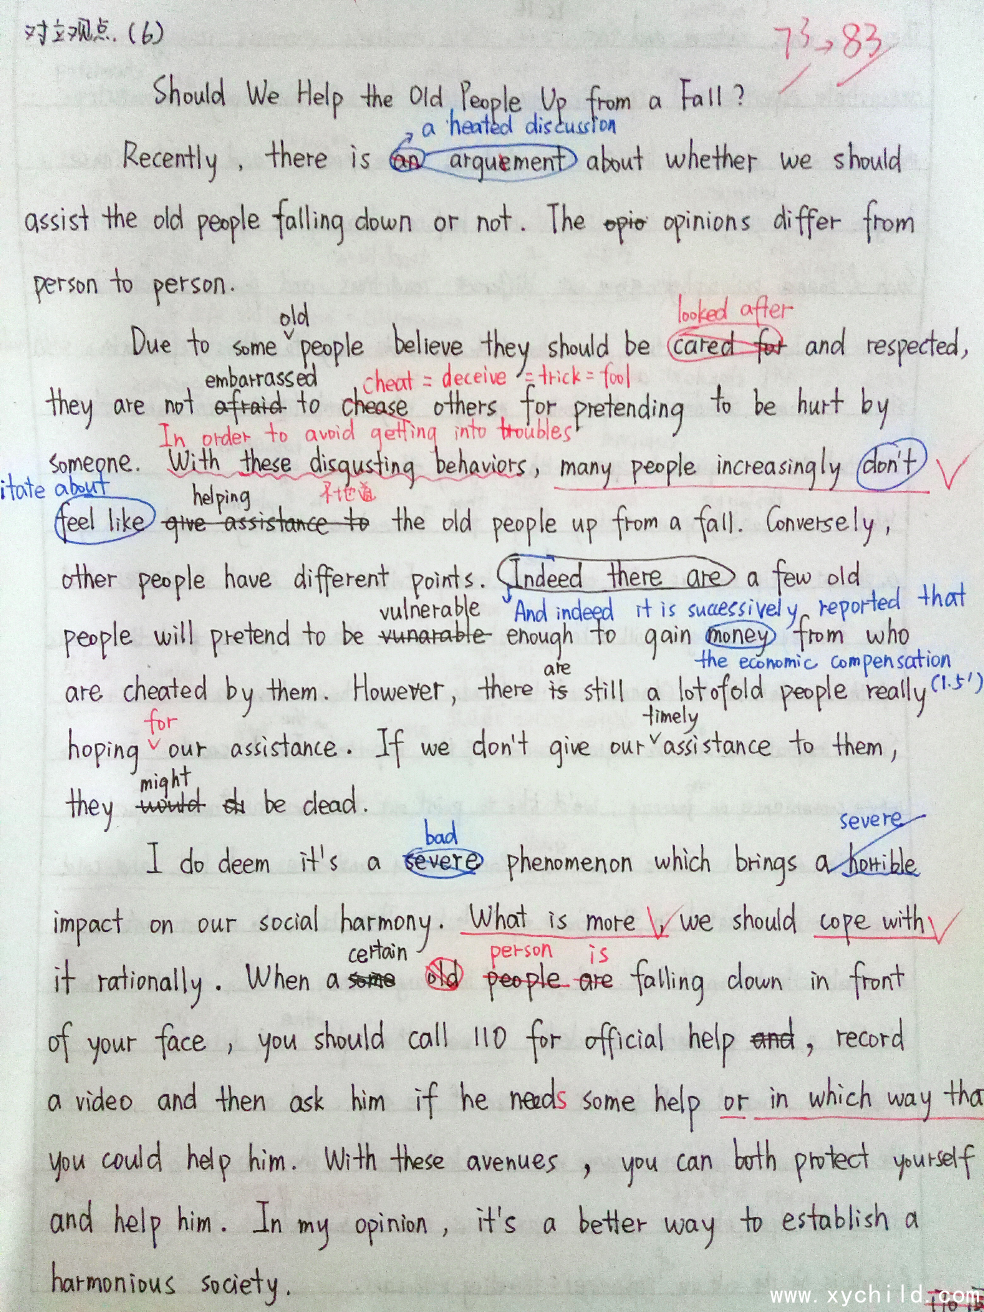 对立观点.(6)
7³→83
Should We Help the Old People Up from a Fall?
a heated discussion
Recently, there is an arguement about whether we should
assist the old people falling down or not. The opio opinions differ from
person to person.
old
looked after
Due to some people believe they should be cared for and respected,
embarrassed
cheat = deceive = trick = fool
they are not afraid to chease others for pretending to be hurt by
In order to avoid getting into troubles
someone. With these disgusting behaviors, many people increasingly don't
itate about
helping
不地道
feel like give assistance to the old people up from a fall. Conversely,
other people have different points. Indeed there are a few old
vulnerable
And indeed it is successively reported that
people will pretend to be vunarable enough to gain money from who
the economic compensation
are
are cheated by them. However, there is still a lot of old people really (1.5')
for
timely
hoping our assistance. If we don't give our assistance to them,
might
they would di be dead.
bad
severe
I do deem it's a severe phenomenon which brings a horrible
impact on our social harmony. What is more, we should cope with
certain
person is
it rationally. When a some old people are falling down in front
of your face, you should call 110 for official help and, record
a video and then ask him if he needs some help or in which way tha
you could help him. With these avenues, you can both protect yourself
and help him. In my opinion, it's a better way to establish a
harmonious society.
www.xychild.com